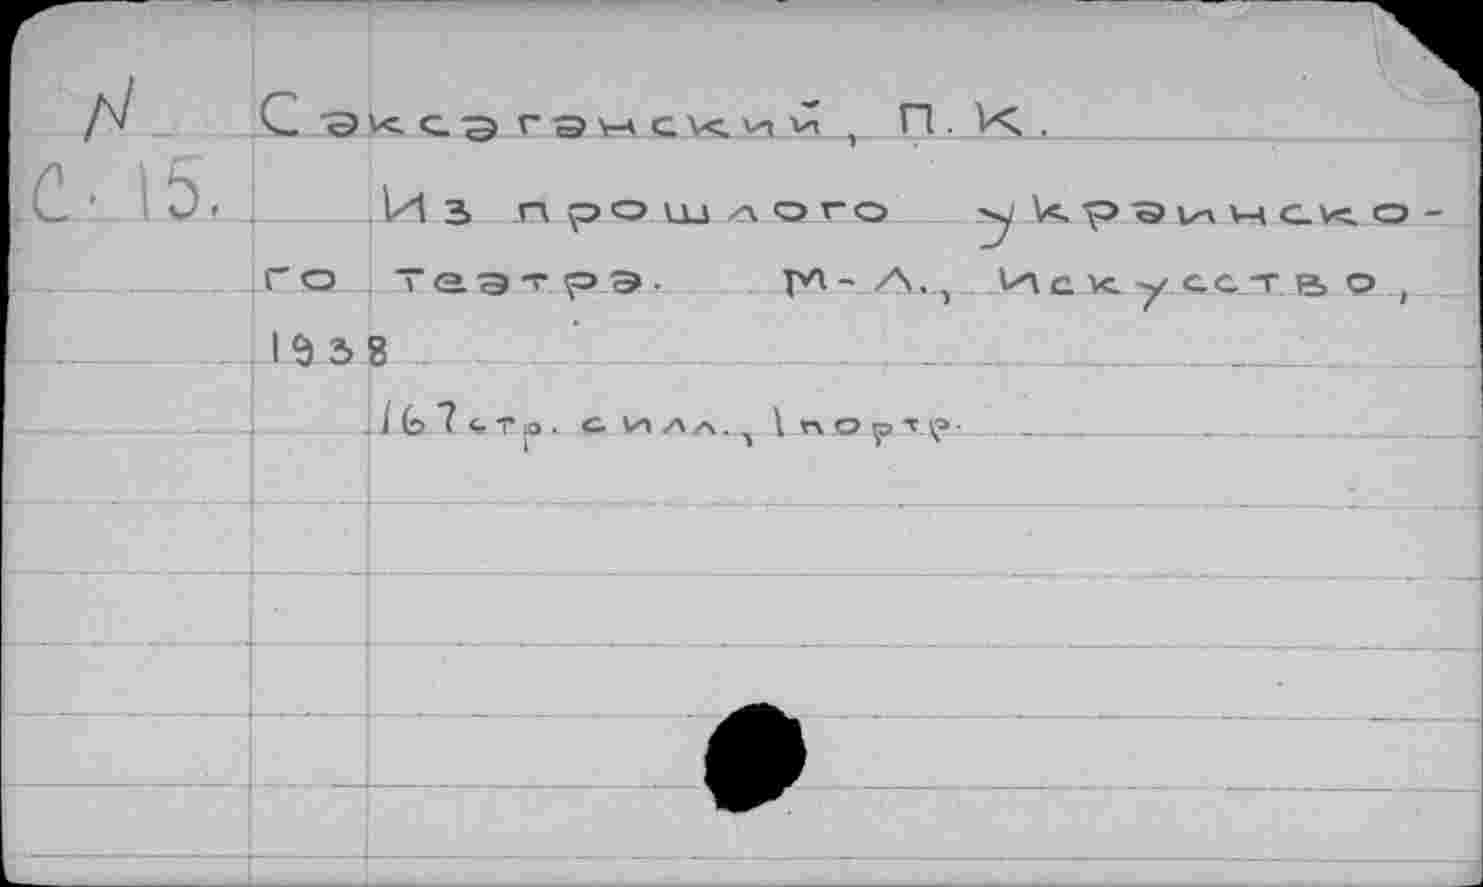 N Саксаганский, П. К.
С. 15. Из прошлого украинско-
го театра. М-Л., Искусство,
1938
167 стр. с илл., 1 портр.